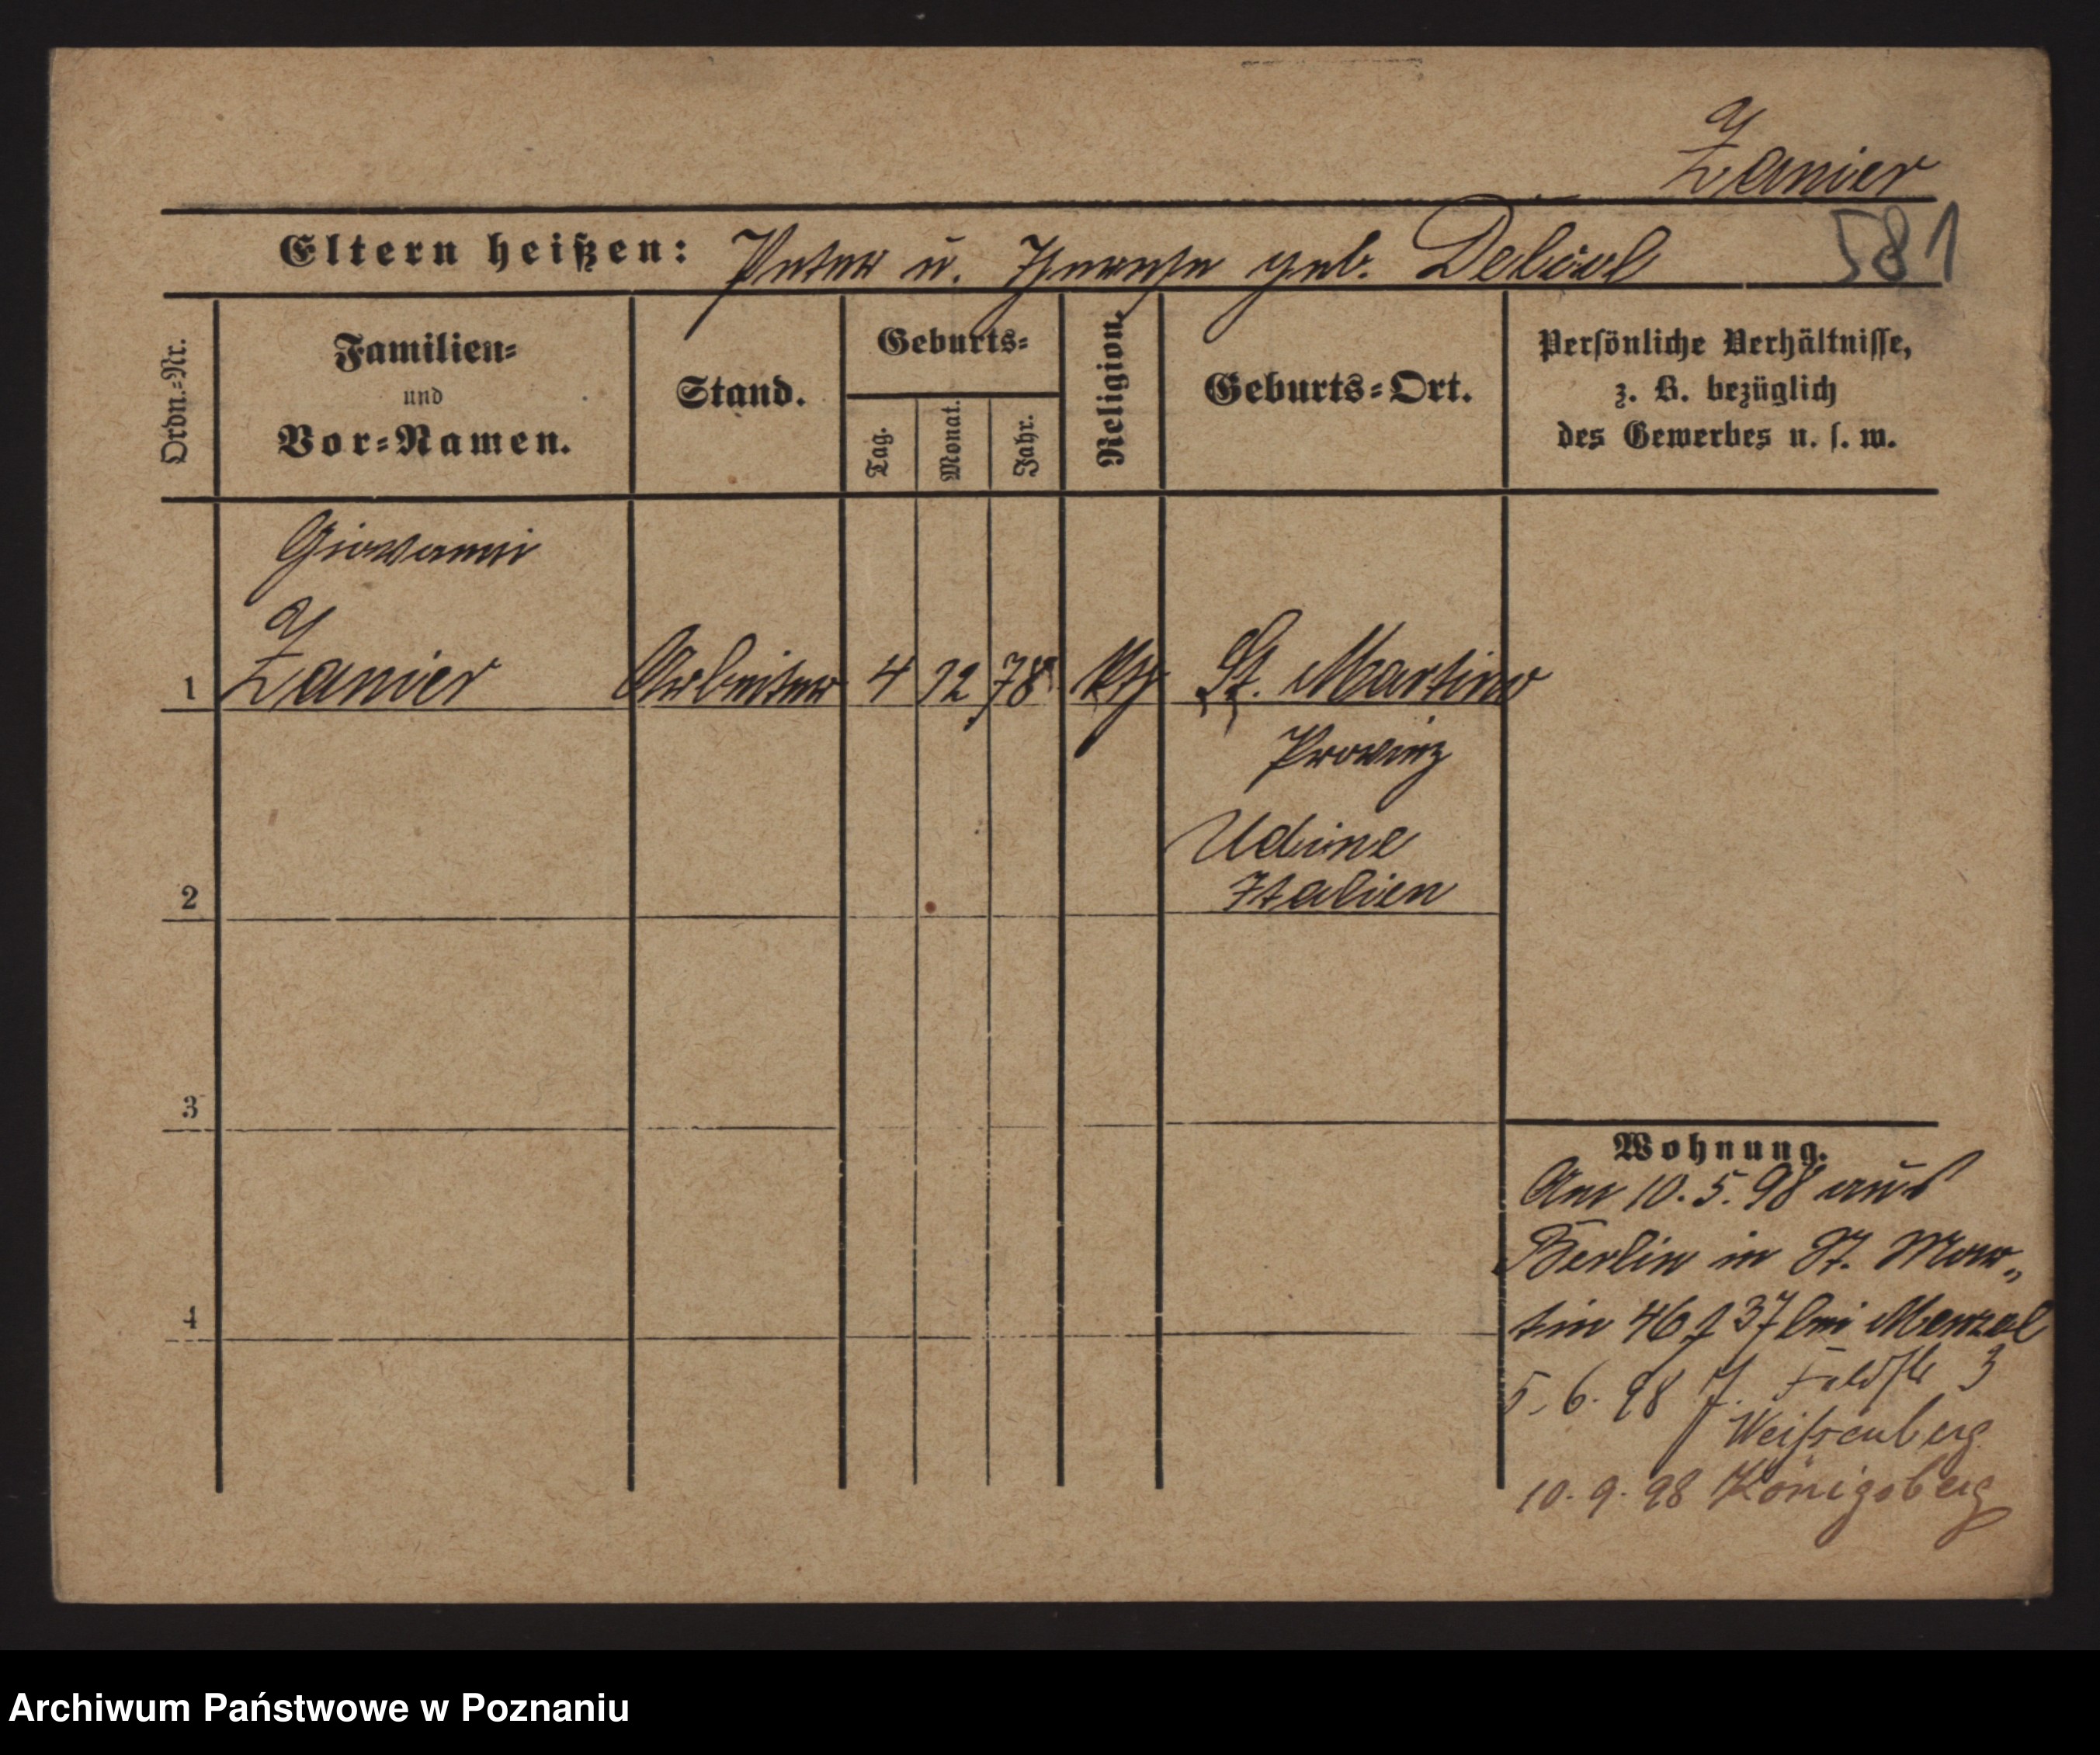 Zanier
Eltern heißen: Peter u. Therese geb. Debiul
581
Ordn.=Nr.
Familien=
und
Vor=Namen.
Stand.
Geburts=
Tag.
Monat.
Jahr.
Religion.
Geburts=Ort.
Persönliche Verhältnisse,
z. B. bezüglich
des Gewerbes u. s. w.
Giovanni
1 Zanier Arbeiter 4 12 78 kth St. Martino
Provinz
Udine
2 Italien
3
Wohnung.
Am 10. 5. 98 aus
Berlin in St. Mar„
4
tin 46 / 37 bei Menzel
5. 6. 98 J. Feldstr 3
Weissenberg
10. 9. 98 Königsberg
Archiwum Państwowe w Poznaniu